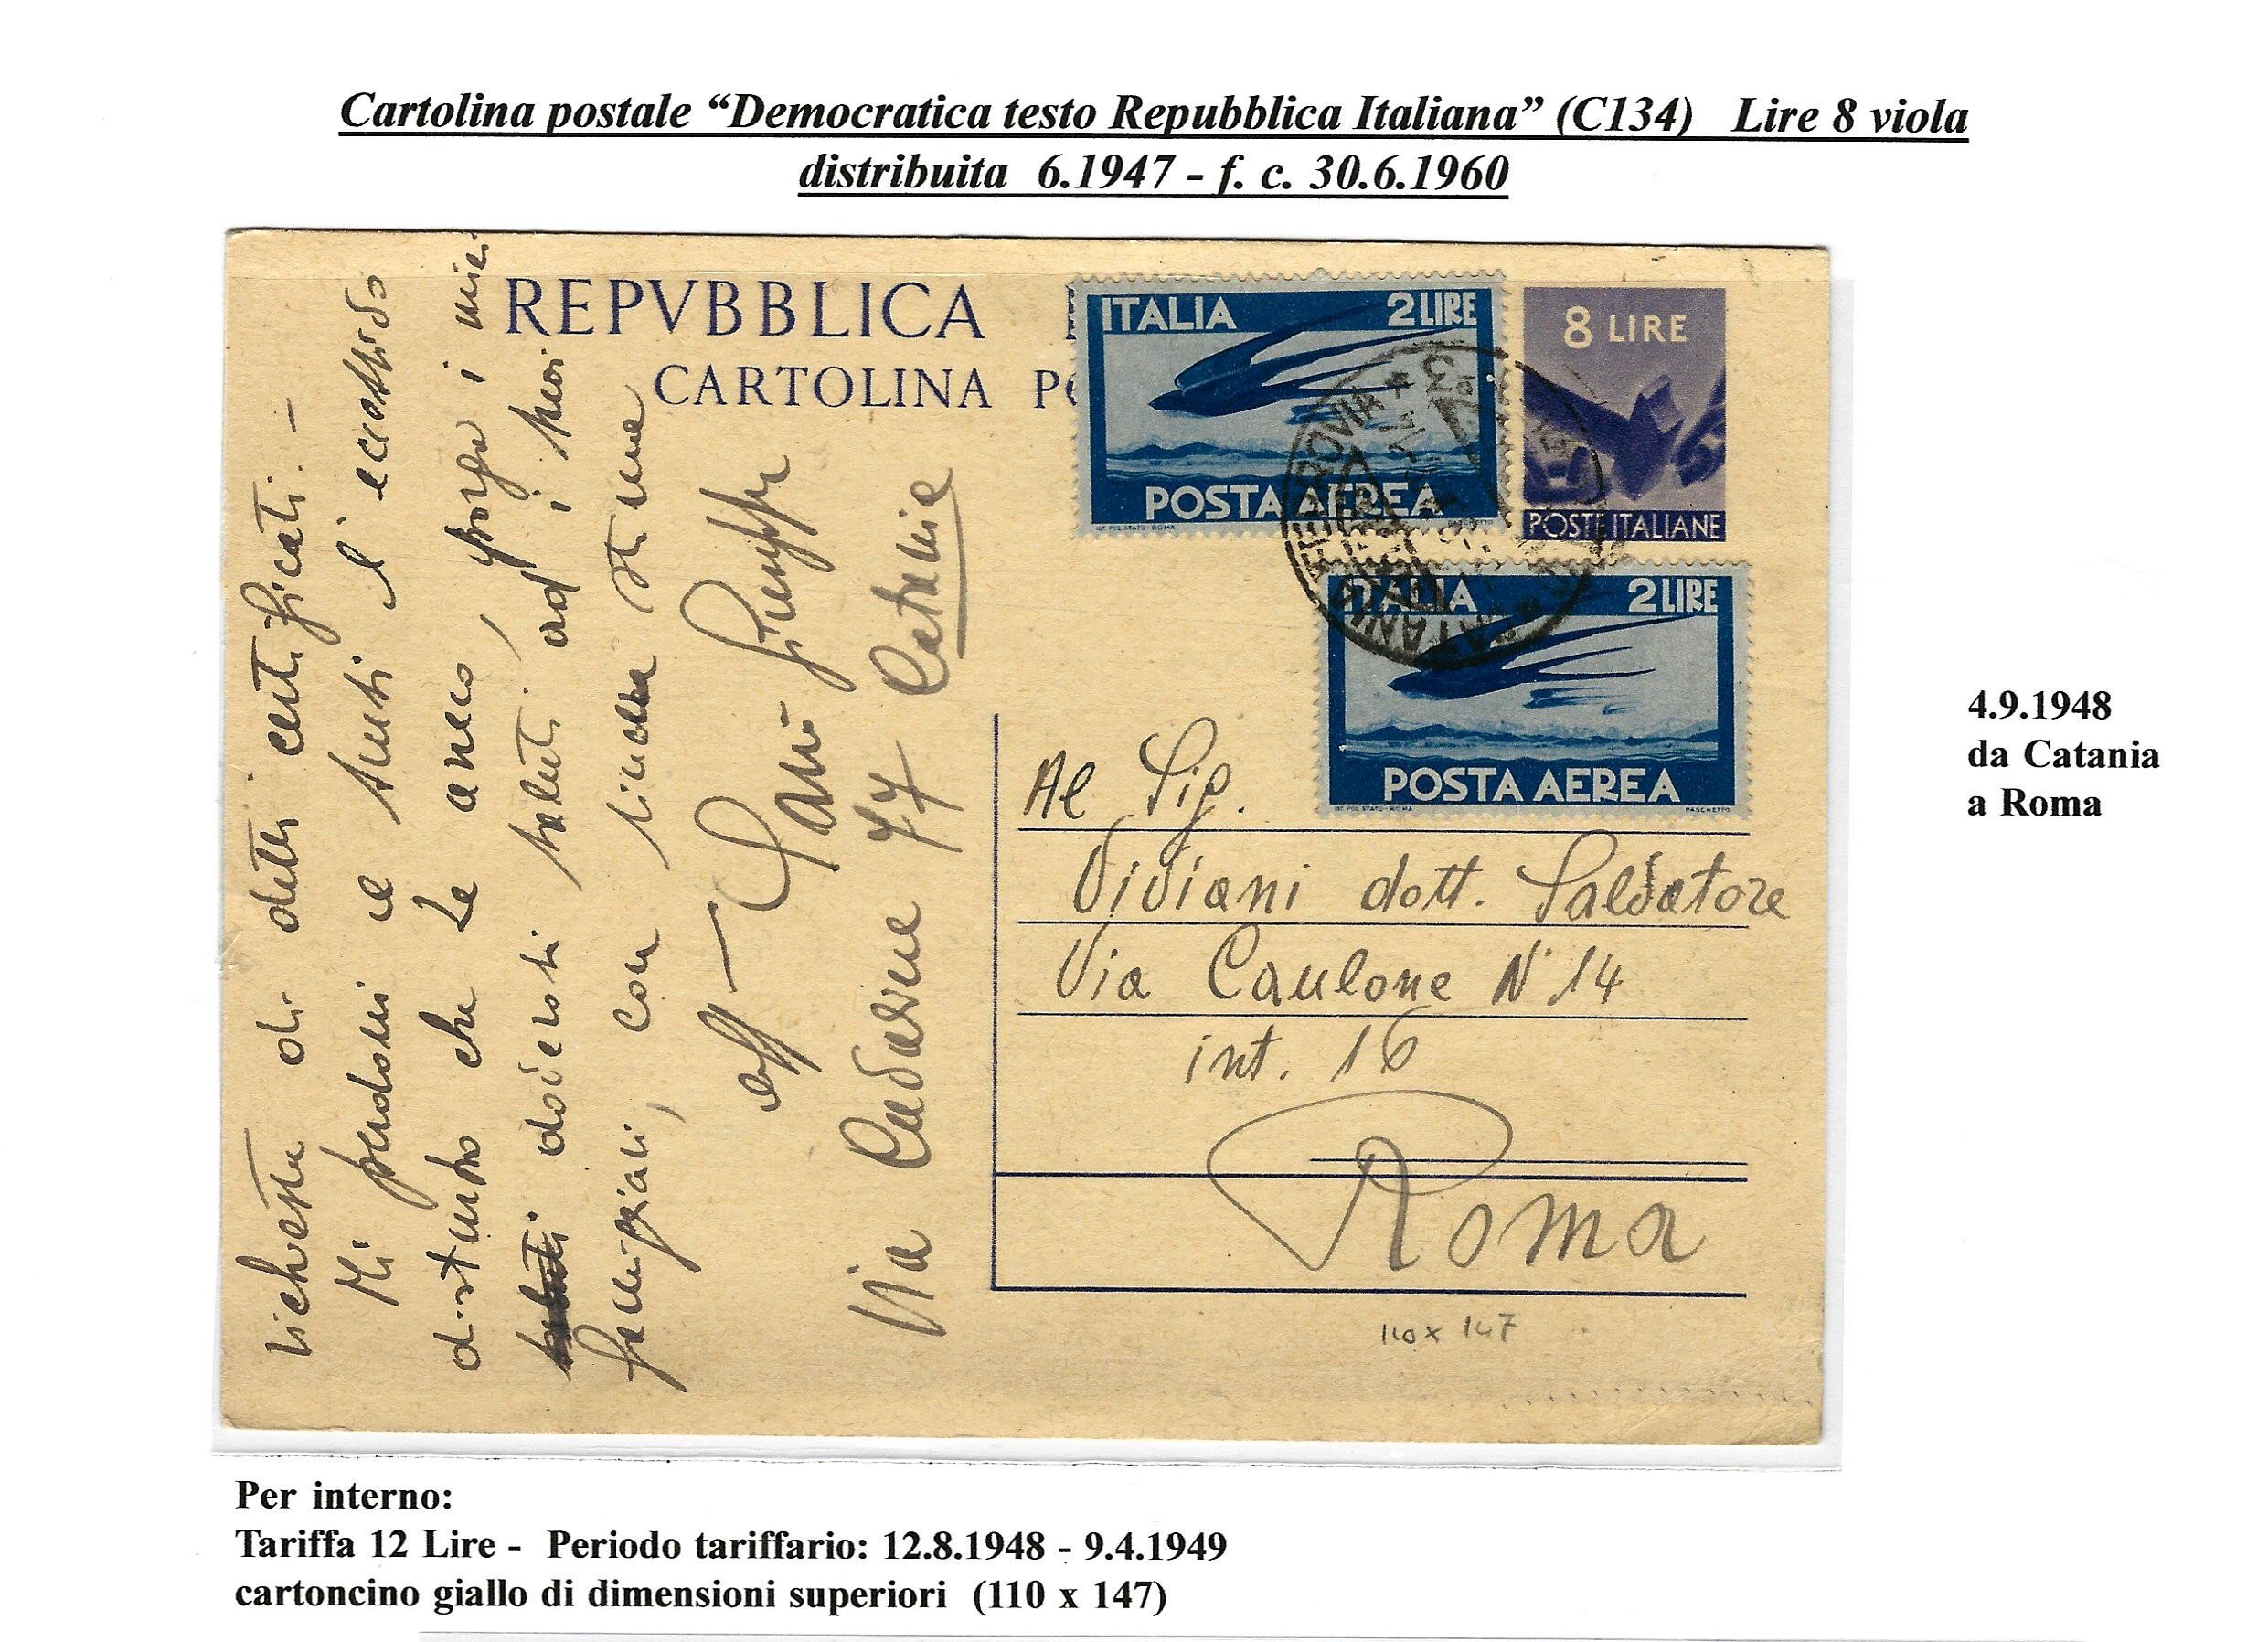 Cartolina postale “Democratica testo Repubblica Italiana” (C134) Lire 8 viola
distribuita 6.1947 - f. c. 30.6.1960
REPVBBLICA
CARTOLINA PO
ITALIA 2 LIRE
POSTA AEREA
IST. POL. STATO - ROMA PASCHETTO
8 LIRE
POSTE ITALIANE
ITALIA 2 LIRE
POSTA AEREA
IST. POL. STATO - ROMA PASCHETTO
richiesta di detti certificati. –
Mi perdoni e scusi l'eccessivo
disturbo che Le arreco, porga i miei
doverosi saluti ad i suoi
famigliari, con sincera stima
aff– Giuseppe
Via Catania
Al Sig.
Viviani dott. Salvatore
Via Caulone N° 14
int. 16
Roma
110 x 147
4.9.1948
da Catania
a Roma
Per interno:
Tariffa 12 Lire - Periodo tariffario: 12.8.1948 - 9.4.1949
cartoncino giallo di dimensioni superiori (110 x 147)